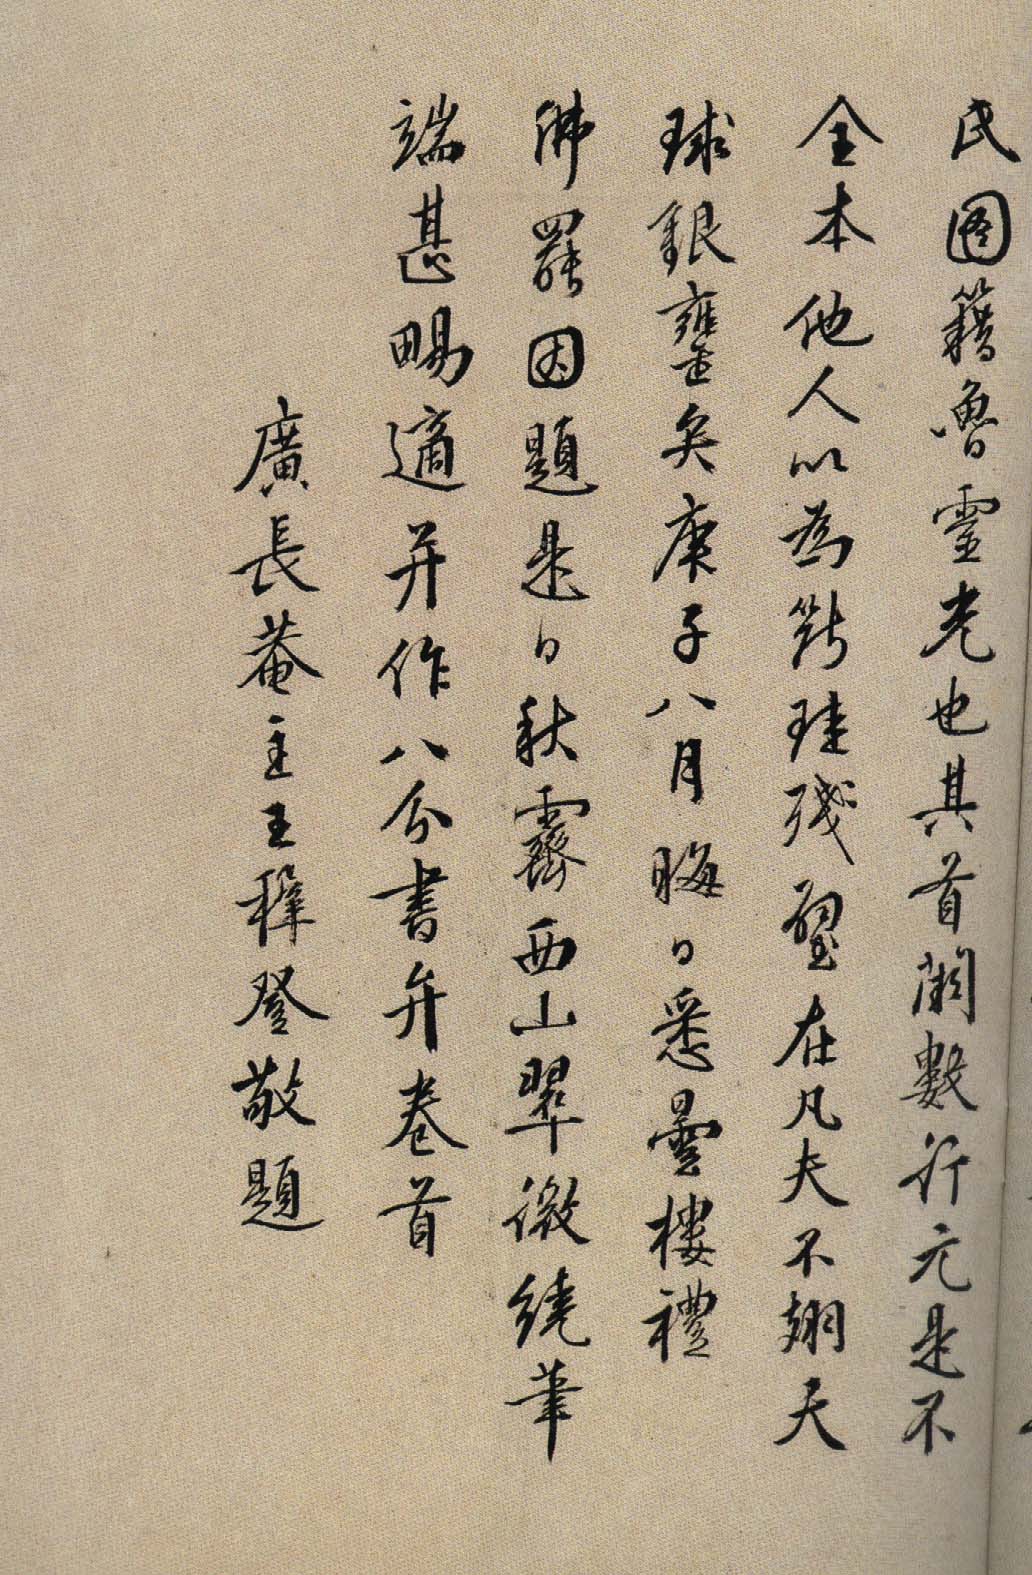 民图籍魯靈光也其首闕數行元是不
全本他人以為斷珪殘璧在凡夫不翅天
球銀甕矣庚子八月晦日悉曇樓禮
佛罷因題是日秋霽西山翠微繞筆
端甚暢適并作八分書弁卷首
廣長菴主王穉登敬題